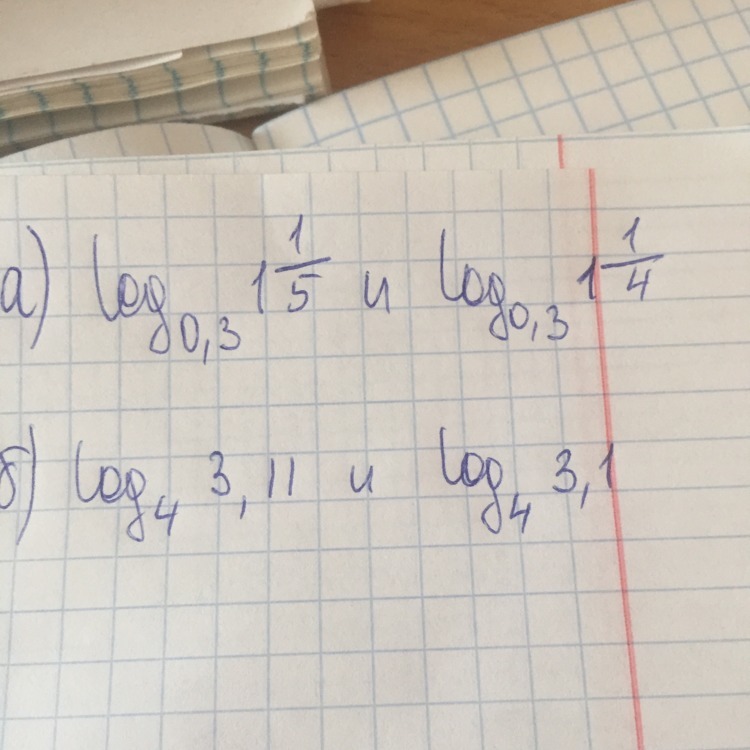 а) log_{0,3} 1\frac{1}{5} и log_{0,3} 1\frac{1}{4}
б) log_4 3,11 и log_4 3,1